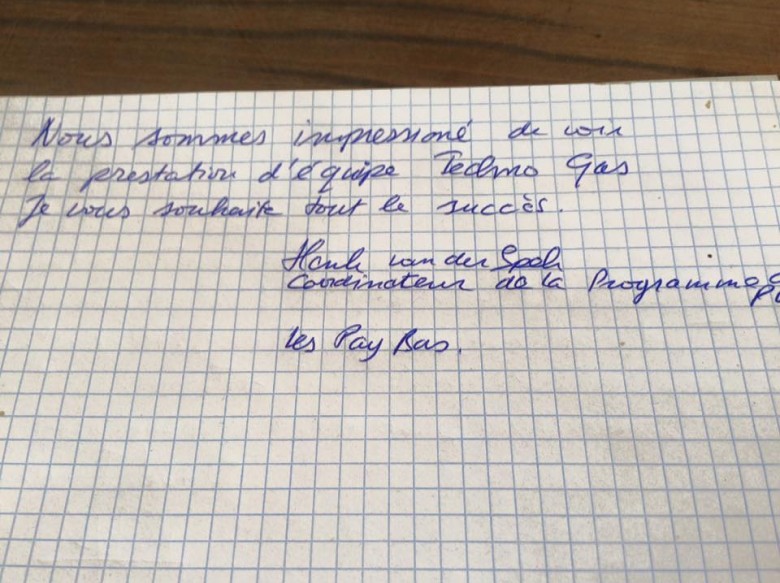 Nous sommes impressioné de voir
la prestation d'équipe Techno Gas
Je vous souhaite tout le succès.
Henk van der Spek
Coördinateur de la Programme
Les Pay Bas.